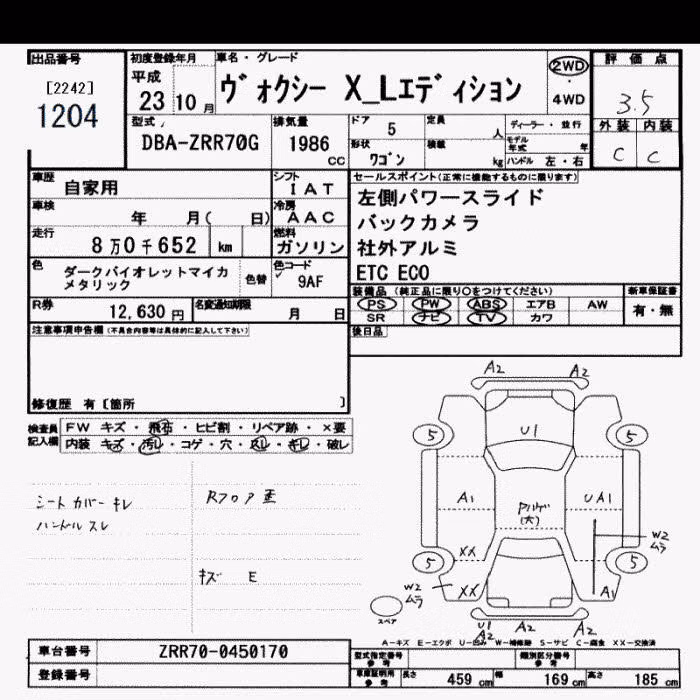 出品番号
[2242]
1204
初度登録年月
平成
23年10月
車名・グレード
ヴォクシー X_Lエディション
2WD
4WD
評価点
3.5
外装 内装
C C
型式
DBA-ZRR70G
排気量
1986
CC
ドア 5
定員 人
形状
ワゴン
積載 kg
ディーラー・並行
モデル年式 年
ハンドル 左・右
車歴 自家用
シフト
IAT
車検 年 月( 日)
冷房
AAC
走行 8万0千652 km
燃料
ガソリン
色 ダークバイオレットマイカメタリック
色替
色コード
9AF
R券 12,630円
名変通知期限 月 日
セールスポイント(正常に機能するものに限ります)
左側パワースライド
バックカメラ
社外アルミ
ETC ECO
装備品 (純正品に限り○をつけてください)
新車保証書
PS PW ABS エアB AW
有・無
SR ナビ TV カワ
後日品
注意事項申告欄(不具合内容等は具体的に記入して下さい)
修復歴 有[箇所 ]
検査員記入欄
FW キズ・飛石・ヒビ割・リペア跡・×要
内装 キズ・汚レ・コゲ・穴・スレ・キレ・破レ
シートカバーキレ
ハンドルスレ
Rフロア
キズ E
A2 A2
5 5
U1
A1 UA1
(大)
W2
ムラ
XX XX
5 5
W2
ムラ
XX A1
スペア
U1
A2 A2
A-キズ E-エクボ U-凹み W-補修跡 S-サビ C-腐食 XX-交換済
車台番号 ZRR70-0450170
登録番号
型式指定番号
参考
類別区分番号
参考
車庫証明用
参考
長さ 459 cm 幅 169 cm 高さ 185 cm